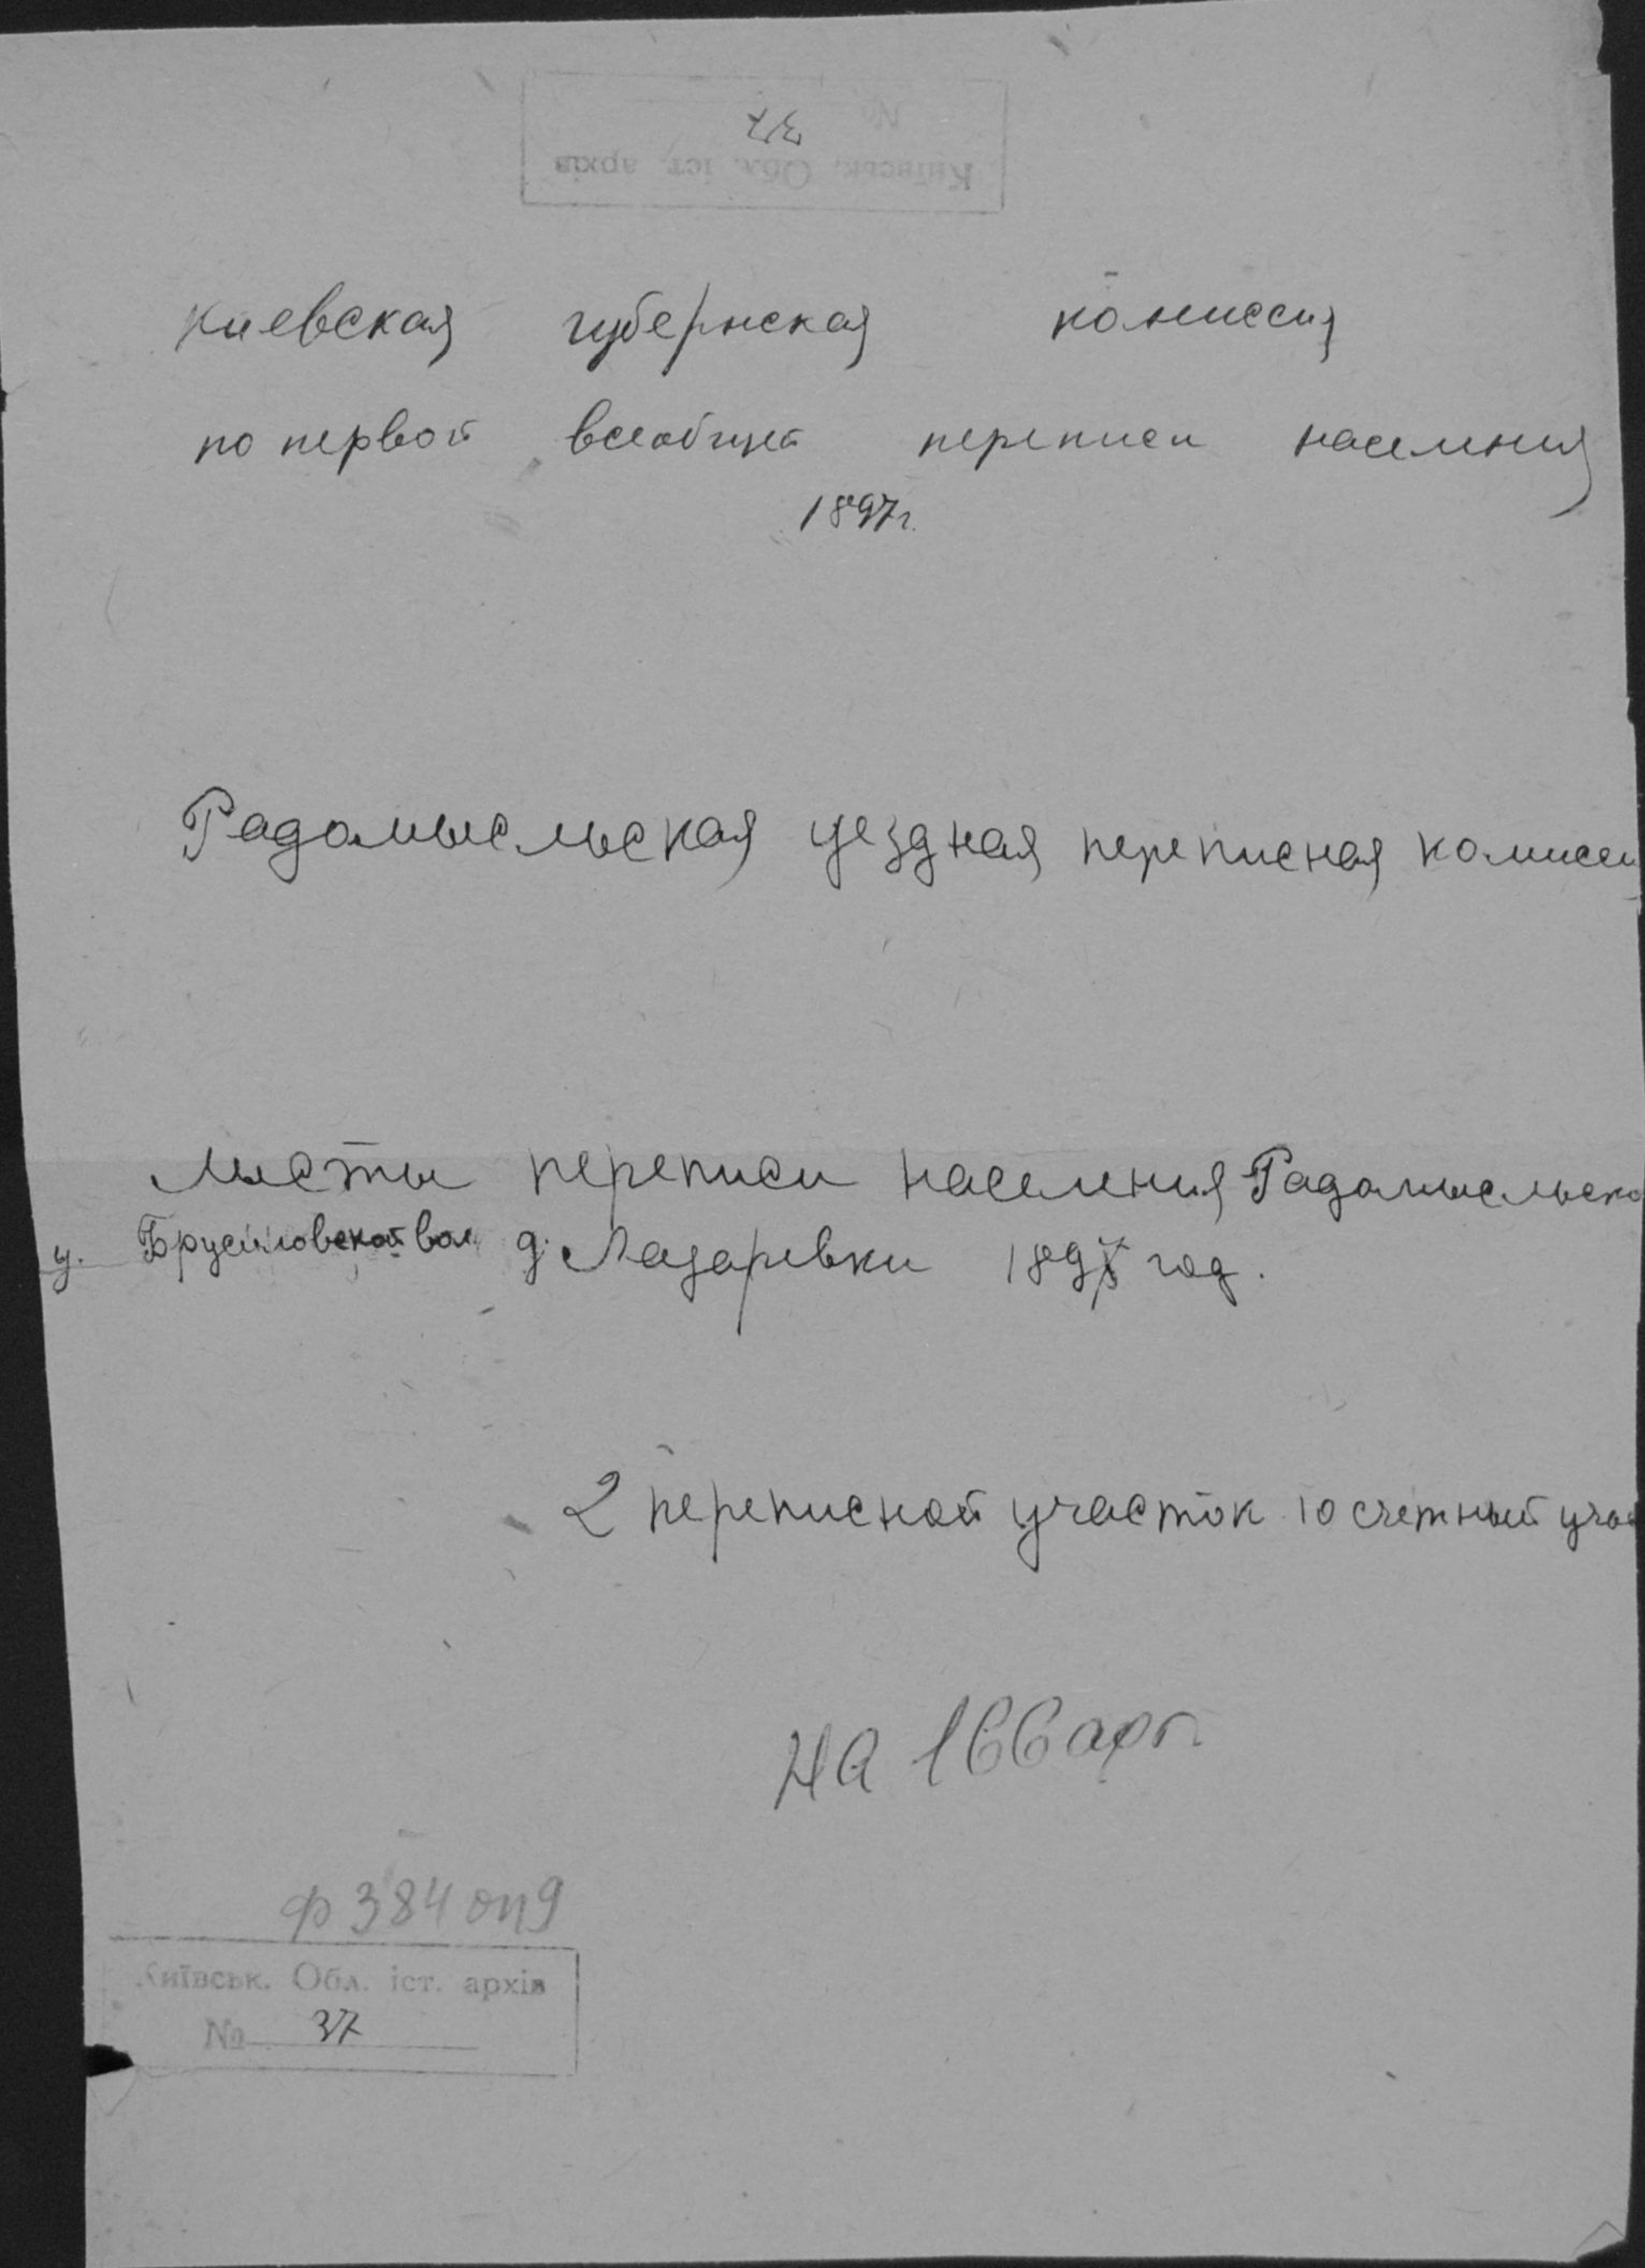 37
№
Київськ. Обл. іст. архів
Киевская губернская комиссия
по первой всеобщей переписи населения
1897г.
Радомысльская уездная переписная комисси
Листы переписи населения Радомысльско
у. Брусиловской вол д. Лазаревки 189 год.
2 переписной участок 10 счетный учас
на 166 арк.
ф 384 оп 9
Київськ. Обл. іст. архів
№ 37